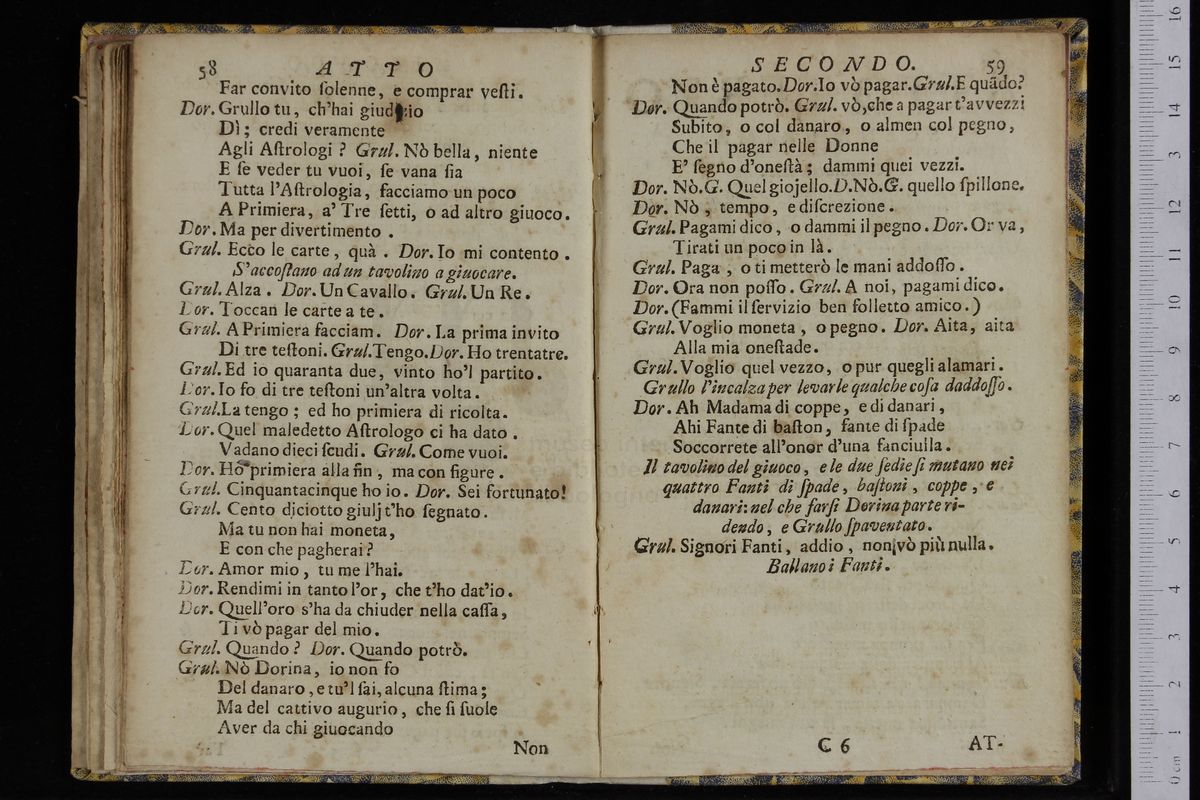 58 ATTO
Far convito ſolenne, e comprar veſti.
Dor. Grullo tu, ch'hai giudizio
Dì; credi veramente
Agli Aſtrologi? Grul. Nò bella, niente
E ſe veder tu vuoi, ſe vana ſia
Tutta l'Aſtrologia, facciamo un poco
A Primiera, a' Tre ſetti, o ad altro giuoco.
Dor. Ma per divertimento.
Grul. Ecco le carte, quà. Dor. Io mi contento.
S'accoſtano ad un tavolino a giuocare.
Grul. Alza. Dor. Un Cavallo. Grul. Un Re.
Dor. Toccan le carte a te.
Grul. A Primiera facciam. Dor. La prima invito
Di tre teſtoni. Grul. Tengo. Dor. Ho trentatre.
Grul. Ed io quaranta due, vinto ho'l partito.
Dor. Io fo di tre teſtoni un'altra volta.
Grul. La tengo; ed ho primiera di ricolta.
Dor. Quel maledetto Aſtrologo ci ha dato.
Vadano dieci ſcudi. Grul. Come vuoi.
Dor. Hò primiera alla fin, ma con figure.
Grul. Cinquantacinque ho io. Dor. Sei fortunato!
Grul. Cento diciotto giulj t'ho ſegnato.
Ma tu non hai moneta,
E con che pagherai?
Dor. Amor mio, tu me l'hai.
Dor. Rendimi in tanto l'or, che t'ho dat'io.
Dor. Quell'oro s'ha da chiuder nella caſſa,
Ti vò pagar del mio.
Grul. Quando? Dor. Quando potrò.
Grul. Nò Dorina, io non fo
Del danaro, e tu'l ſai, alcuna ſtima;
Ma del cattivo augurio, che ſi ſuole
Aver da chi giuocando
Non
SECONDO. 59
Non è pagato. Dor. Io vò pagar. Grul. E quãdo?
Dor. Quando potrò. Grul. vò, che a pagar t'avvezzi
Subito, o col danaro, o almen col pegno,
Che il pagar nelle Donne
E' ſegno d'oneſtà; dammi quei vezzi.
Dor. Nò. G. Quel giojello. D. Nò. G. quello ſpillone.
Dor. Nò, tempo, e diſcrezione.
Grul. Pagami dico, o dammi il pegno. Dor. Or va,
Tirati un poco in là.
Grul. Paga, o ti metterò le mani addoſſo.
Dor. Ora non poſſo. Grul. A noi, pagami dico.
Dor. (Fammi il ſervizio ben folletto amico.)
Grul. Voglio moneta, o pegno. Dor. Aita, aita
Alla mia oneſtade.
Grul. Voglio quel vezzo, o pur quegli alamari.
Grullo l'incalza per levarle qualche coſa daddoſſo.
Dor. Ah Madama di coppe, e di danari,
Ahi Fante di baſton, fante di ſpade
Soccorrete all'onor d'una fanciulla.
Il tavolino del giuoco, e le due ſedie ſi mutano nei
quattro Fanti di ſpade, baſtoni, coppe, e
danari: nel che farſi Dorina parte ri-
dendo, e Grullo ſpaventato.
Grul. Signori Fanti, addio, non vò più nulla.
Ballano i Fanti.
C 6 AT-
16
15
14
13
12
11
10
9
8
7
6
5
4
3
2
1
0 cm